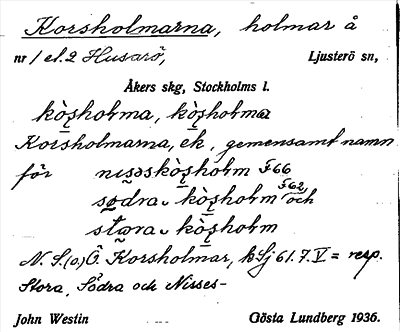 Korsholmarna, holmar å
nr 1 el. 2 Husarö, Ljusterö sn,
Åkers skg, Stockholms l.
kòʂholma, kòʂholmɑ
Korsholmarna, ek, gemensamt namn
för nisəskòʂholm F66
sødra kòʂholm F62 och
stora kòʂholm
N. S. (o.) Ö. Korsholmar, hSj 61.7.V = resp.
Stora, Södra och Nisses-
John Westin Gösta Lundberg 1936.